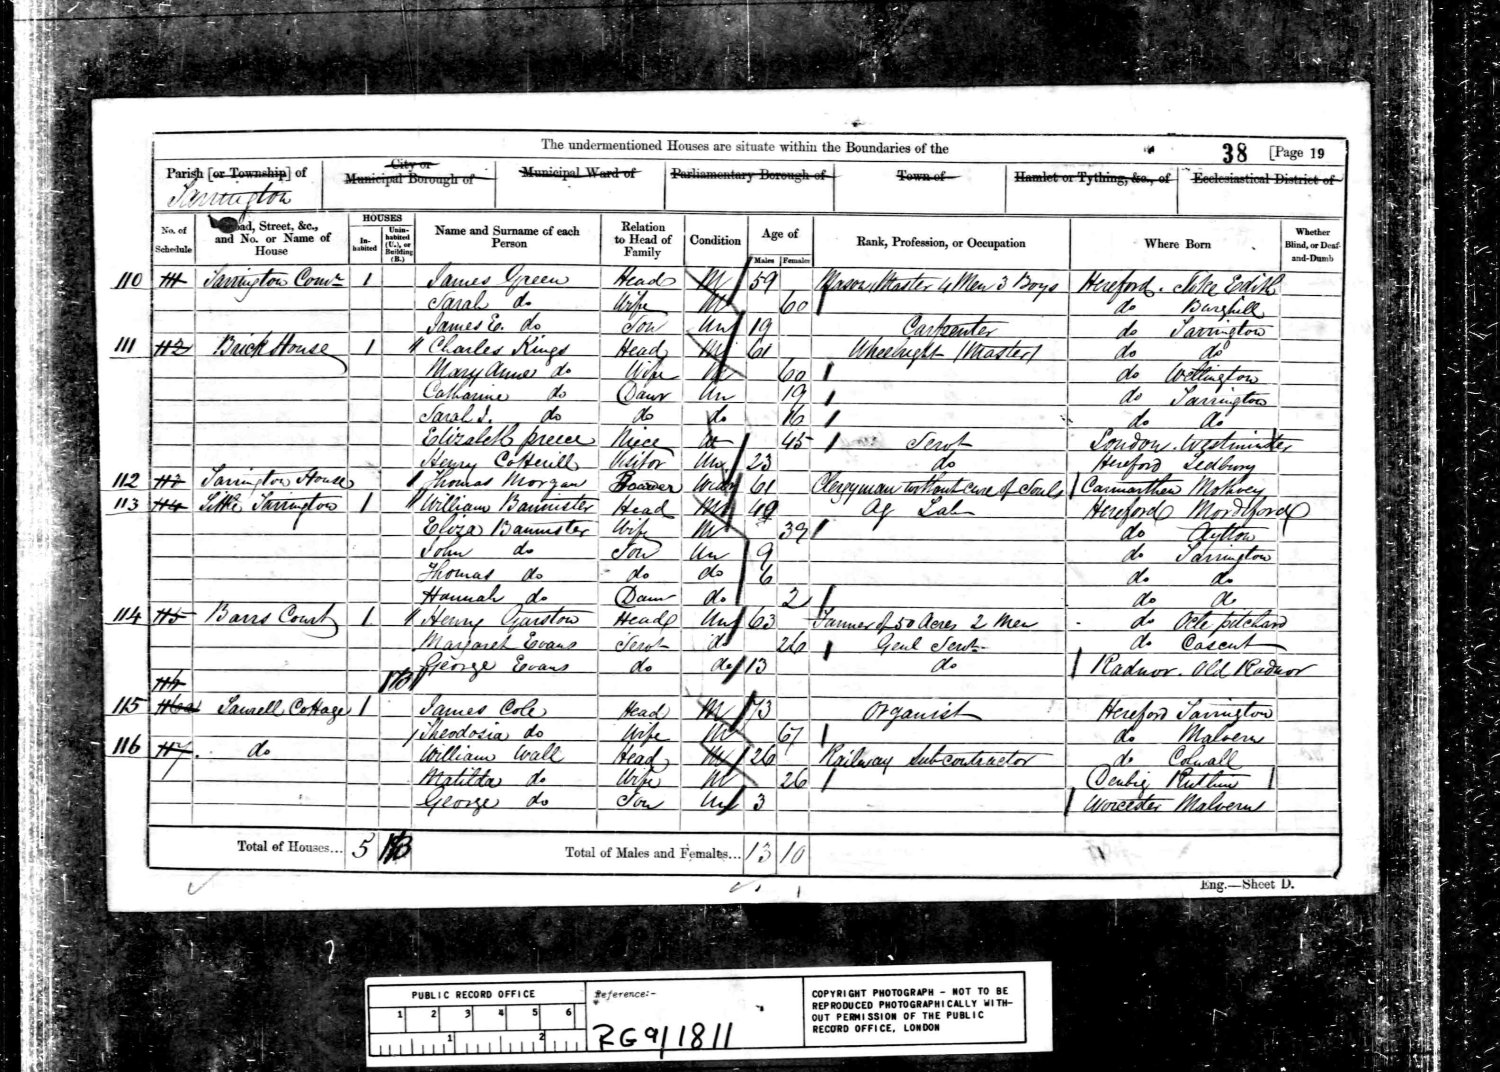 The undermentioned Houses are situate within the Boundaries of the
38 [Page 19
Parish [or Township] of
Tarrington
City or
Municipal Borough of
Municipal Ward of
Parliamentary Borough of
Town of
Hamlet or Tything, &c., of
Ecclesiastical District of
No. of Schedule
Road, Street, &c., and No. or Name of House
HOUSES
Inhabited
Uninhabited (U.), or Building (B.)
Name and Surname of each Person
Relation to Head of Family
Condition
Age of
Males
Females
Rank, Profession, or Occupation
Where Born
Whether Blind, or Deaf-and-Dumb
110 111 Tarrington Comn 1 James Green Head M 59 Mason Master 4 Men 3 Boys Hereford. Stoke Edith
Sarah do Wife M 60 do Burghill
James E. do Son Un 19 Carpenter do Tarrington
111 112 Brick House 1 Charles Kings Head M 61 Wheelright (Master) do do
Mary Anne do Wife M 60 do Wellington
Catharine do Daur Un 19 do Tarrington
Sarah J. do do do 16 do do
Elizabeth preece Niece 45 Servt London. Westminster
Henry Cotterill Visitor Un 23 do Hereford Ledbury
112 113 Tarrington House Thomas Morgan Widr 61 Clergyman without cure of Souls Carmarthen Mothvey
113 114 Little Tarrington 1 William Bannister Head M 49 Ag Lab Hereford Mordiford
Eliza Bannister Wife M 39 do Aylton
John do Son Un 9 do Tarrington
Thomas do do do 6 do do
Hannah do Daur do 2 do do
114 115 Barrs Court 1 Henry Garston Head Un 63 Farmer of 50 Acres 2 Men do Ocle pitchard
Margaret Evans Servt do 26 Genl Servt do Cascut
George Evans do do 13 do Radnor. Old Radnor
116 1B
115 116a Sawell Cottage 1 James Cole Head M 73 Organist Hereford Tarrington
Theodosia do Wife M 67 do Malvern
116 117. do William Wall Head M 26 Railway Subcontractor do Colwall
Matilda do Wife M 26 Denbig Ruthin
George do Son Un 3 Worcester Malvern
Total of Houses... 5 1B Total of Males and Females... 13 10
Eng.—Sheet D.
PUBLIC RECORD OFFICE
1 2 3 4 5 6
1 2
Reference:-
RG9/1811
COPYRIGHT PHOTOGRAPH - NOT TO BE
REPRODUCED PHOTOGRAPHICALLY WITH-
OUT PERMISSION OF THE PUBLIC
RECORD OFFICE, LONDON